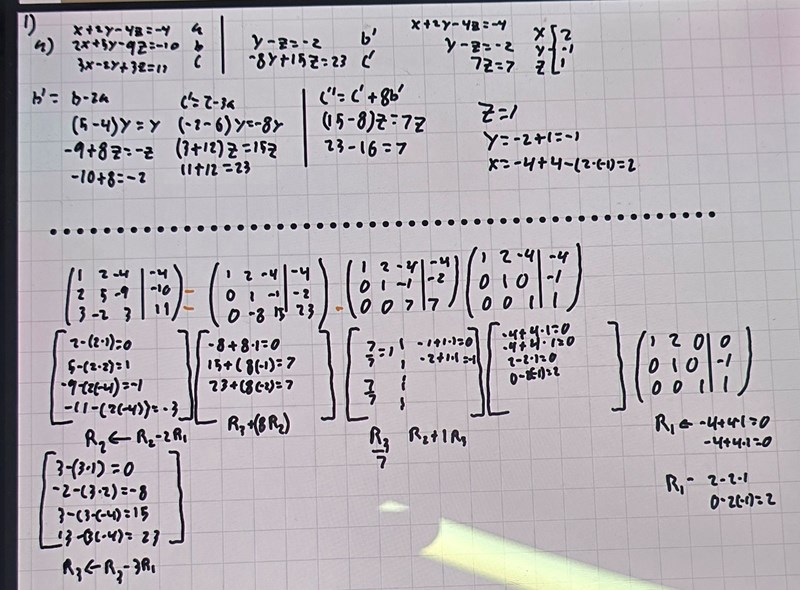 1)
a) x+2y-4z=-4 a
2x+5y-9z=-10 b
3x-2y+3z=11 c
y-z=-2 b'
-8y+15z=23 c'
x+2y-4z=-4
y-z=-2
7z=7
x 2
y -1
z 1
b'= b-2a
(5-4)y=y
-9+8z=-z
-10+8=-2
c'=c-3a
(-2-6)y=-8y
(3+12)z=15z
11+12=23
c''=c'+8b'
(15-8)z=7z
23-16=7
z=1
y=-2+1=-1
x=-4+4-(2·(-1)=2
1 2 -4 | -4
2 5 -9 | -10
3 -2 3 | 11
=
1 2 -4 | -4
0 1 -1 | -2
0 -8 15 | 23
1 2 -4 | -4
0 1 -1 | -2
0 0 7 | 7
1 2 -4 | -4
0 1 0 | -1
0 0 1 | 1
2-(2·1)=0
5-(2·2)=1
-9-(2(-4)=-1
R2 ← R2-2R1
-8+8·1=0
15+(8(-1)=7
23+(8(-2)=7
R3+(8R2)
7/7=1
7/7
-1+1·1=0
-2+1·1=-1
R3/7 R2+1R3
-4+4·1=0
-4+4·1=0
2-2·1=0
1 2 0 | 0
0 1 0 | -1
0 0 1 | 1
R1 ← -4+4·1=0
-4+4·1=0
R1- 2-2·1
0-2(-1)=2
3-(3·1)=0
-2-(3·2)=-8
3-(3·(-4)=15
R3 ← R3-3R1